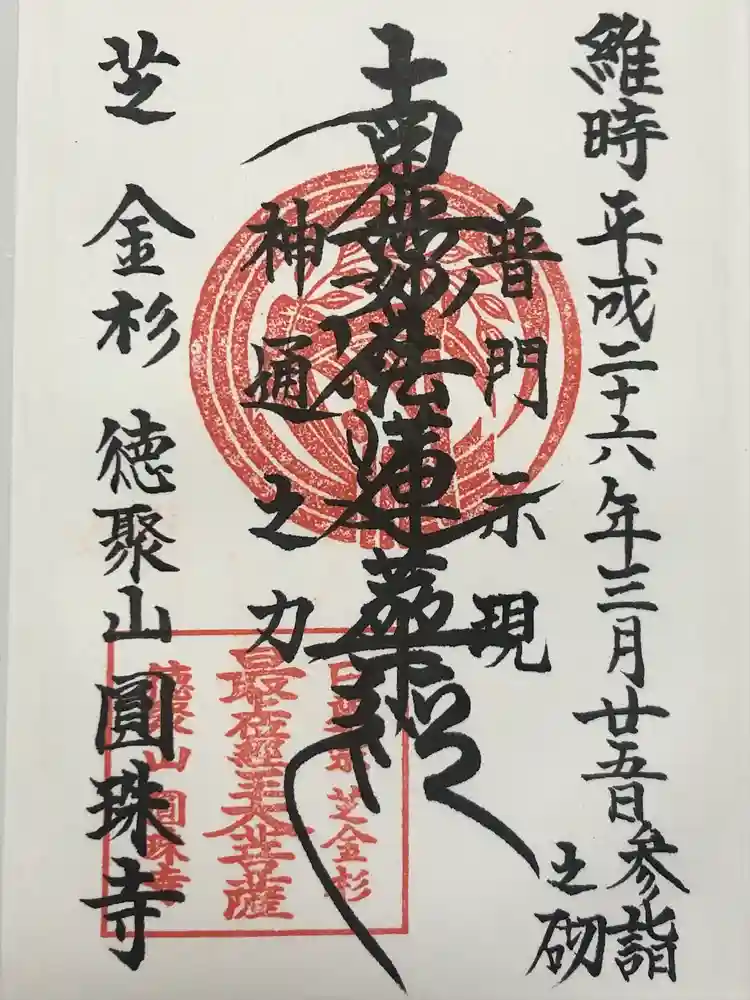 維時平成二十六年三月廿五日参詣
之砌
普門示現
南無妙法蓮華経
神通之力
芝金杉徳聚山圓珠寺
芝金杉
最上位経王大菩薩
徳聚山圓珠寺